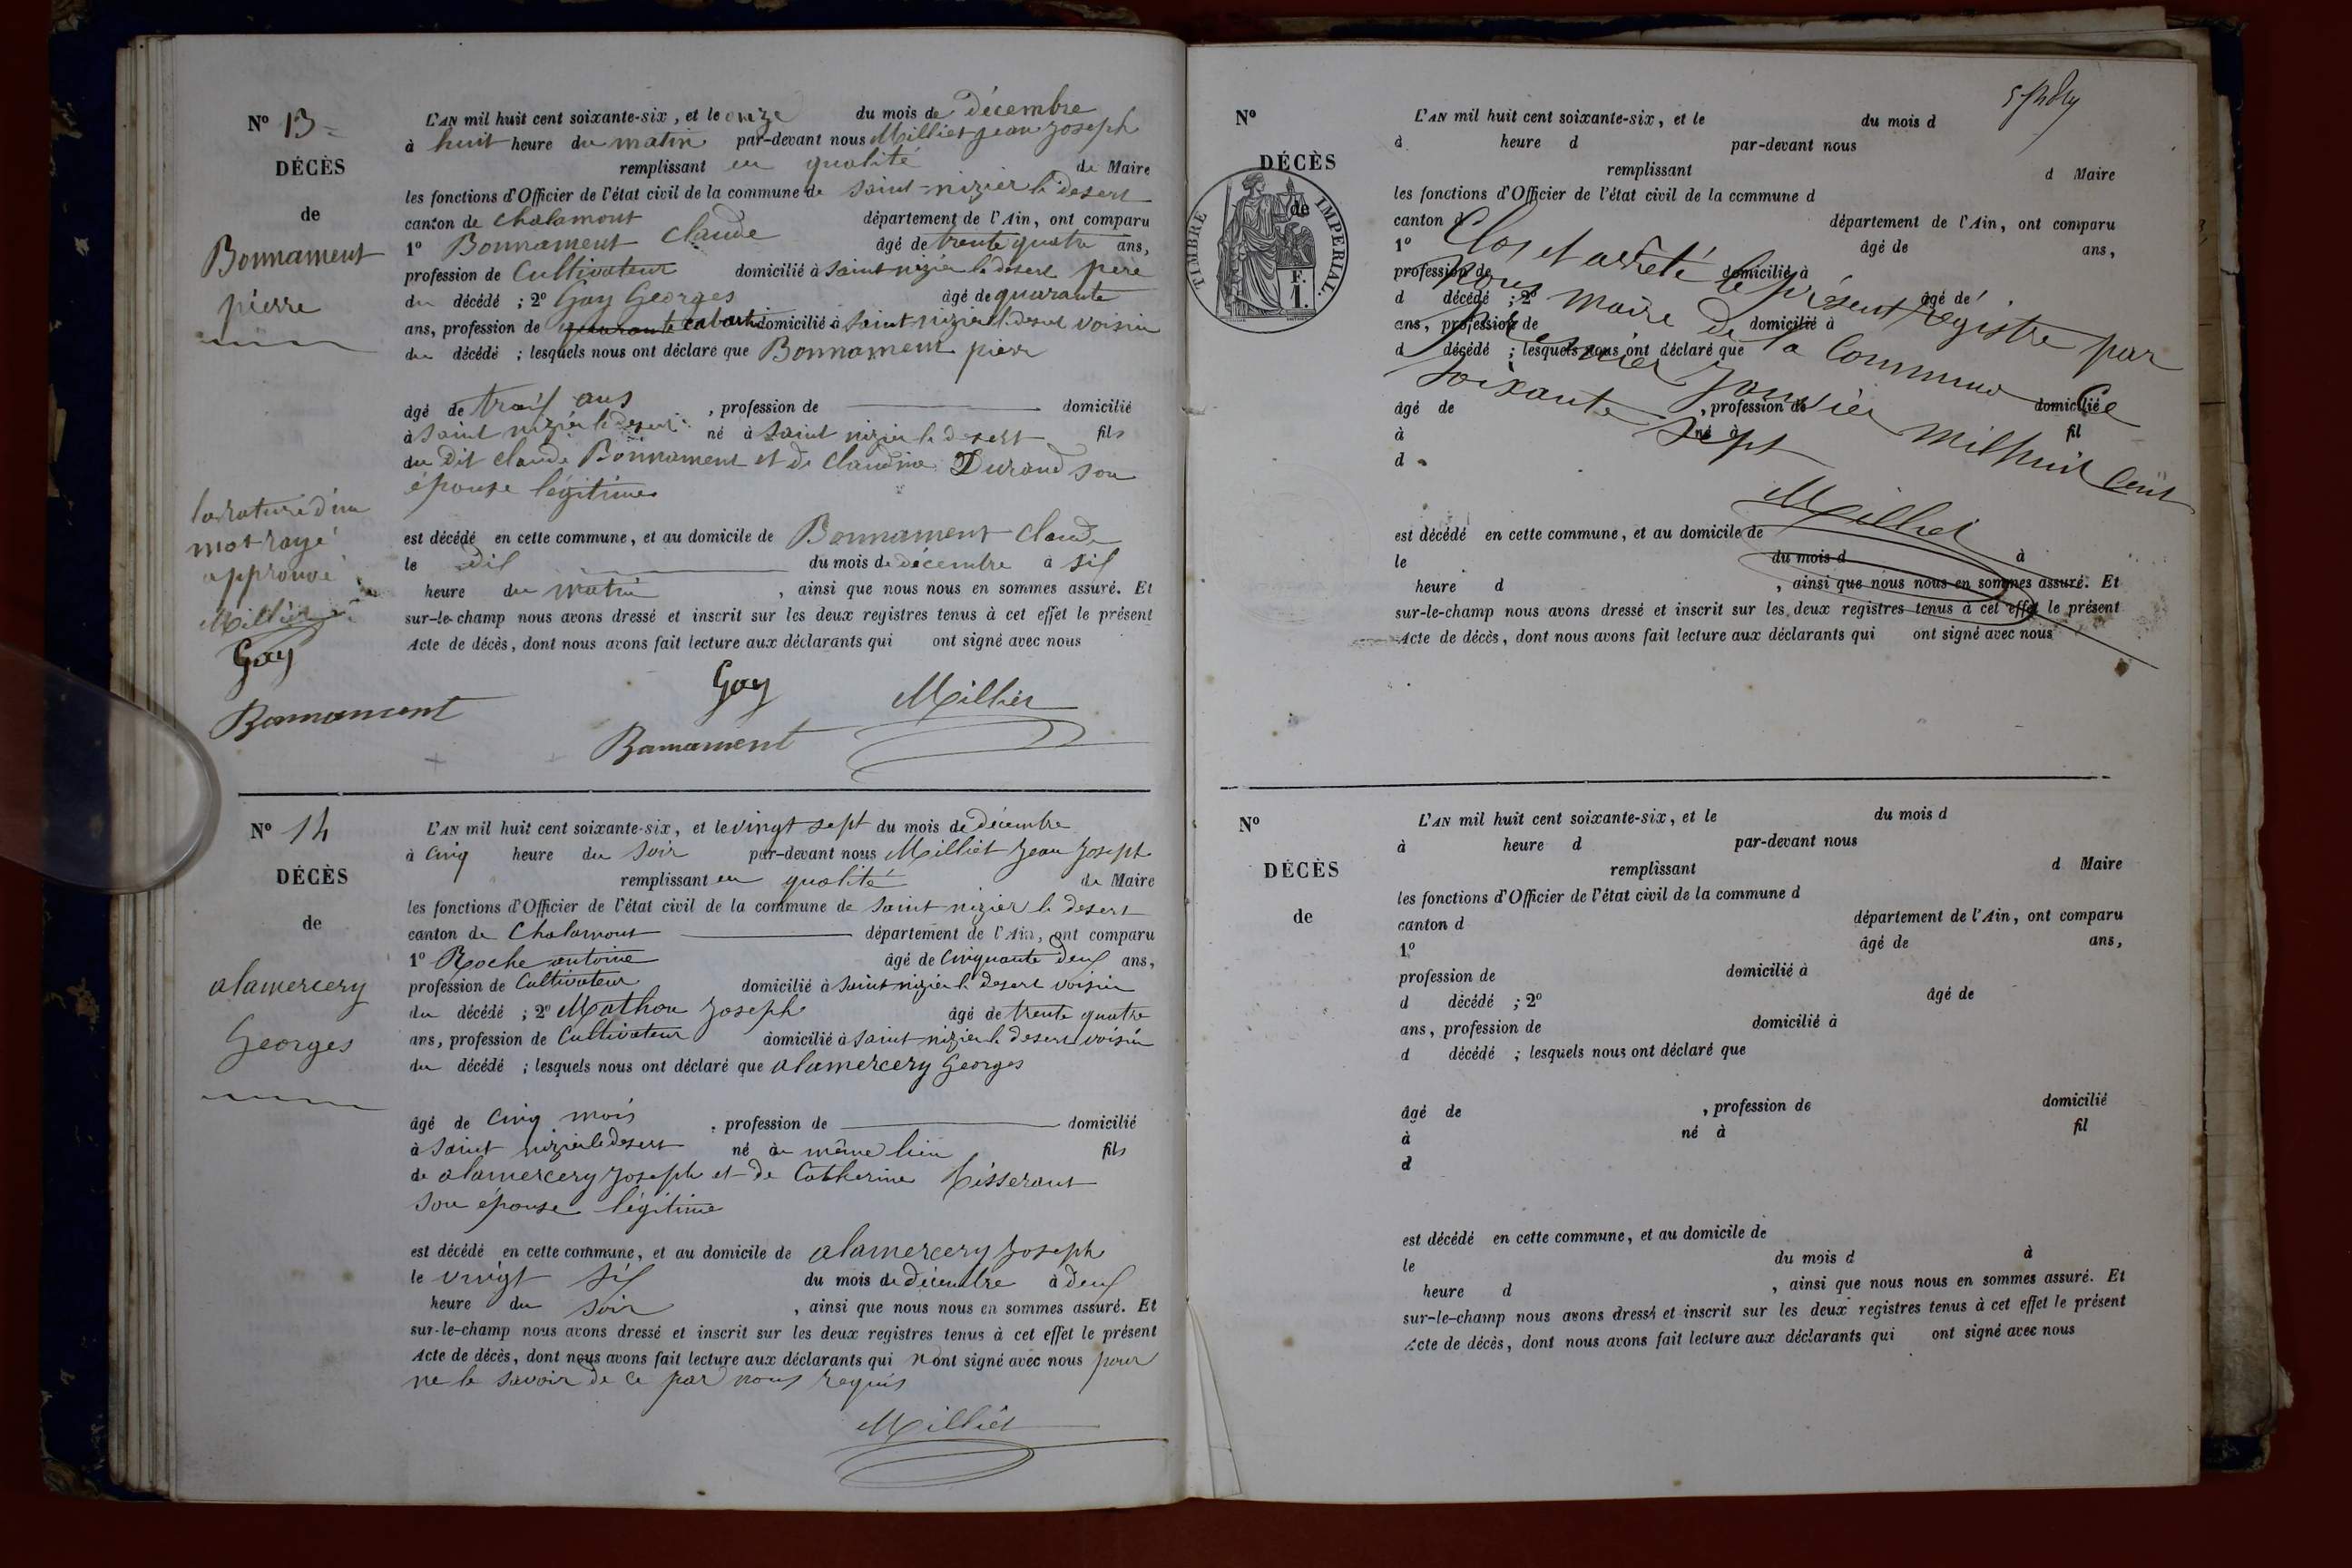 Nº 13
DÉCÈS
de
Bonnament
pierre
L'AN mil huit cent soixante-six, et le onze du mois de décembre
à huit heure du matin par-devant nous Milliet jean Joseph
remplissant en qualité de Maire
les fonctions d'Officier de l'état civil de la commune de saint-nizier le desert
canton de chalamont département de l'Ain, ont comparu
1º Bonnament Claude âgé de trente quatre ans,
profession de Cultivateur domicilié à saint nizier le désert père
du décédé ; 2º Gay Georges âgé de quarante
ans, profession de domicilié à saint-nizier le desert voisin
du décédé ; lesquels nous ont déclaré que Bonnament pierre
âgé de trois ans , profession de domicilié
à saint nizier le desert né à saint nizier le desert fils
du dit claude Bonnament et de claudine Durand son
épouse légitime
la rature d'un
mot rayé
approuvé
Milliet
Gay
Bonnament
est décédé en cette commune, et au domicile de Bonnament Claude
le dix du mois de décembre à six
heure du matin , ainsi que nous nous en sommes assuré. Et
sur-le-champ nous avons dressé et inscrit sur les deux registres tenus à cet effet le présent
Acte de décès, dont nous avons fait lecture aux déclarants qui ont signé avec nous
Gay Milliet
Bonnament
Nº 14
DÉCÈS
de
alamercery
Georges
L'AN mil huit cent soixante-six, et le vingt sept du mois de décembre
à cinq heure du soir par-devant nous Milliet Jean Joseph
remplissant en qualité de Maire
les fonctions d'Officier de l'état civil de la commune de saint-nizier le desert
canton de Chalamont département de l'Ain, ont comparu
1º Roche antoine âgé de cinquante deux ans,
profession de Cultivateur domicilié à saint-nizier le desert voisin
du décédé ; 2º Mathon Joseph âgé de trente quatre
ans, profession de Cultivateur domicilié à saint-nizier le desert voisin
du décédé ; lesquels nous ont déclaré que alamercery Georges
âgé de cinq mois , profession de domicilié
à saint nizier le desert né au même lieu fils
de alamercery Joseph et de Catherine Tisserant
son épouse légitime
est décédé en cette commune, et au domicile de alamercery Joseph
le vingt six du mois de décembre à deux
heure du soir , ainsi que nous nous en sommes assuré. Et
sur-le-champ nous avons dressé et inscrit sur les deux registres tenus à cet effet le présent
Acte de décès, dont nous avons fait lecture aux déclarants qui n'ont signé avec nous pour
ne le savoir de ce par nous requis
Milliet
Nº
DÉCÈS
de
TIMBRE IMPERIAL.
F.
1.
L'AN mil huit cent soixante-six, et le du mois d
à heure d par-devant nous
remplissant d Maire
les fonctions d'Officier de l'état civil de la commune d
canton d département de l'Ain, ont comparu
1º âgé de ans,
profession de domicilié à
d décédé ; 2º âgé de
ans, profession de domicilié à
d décédé ; lesquels nous ont déclaré que
âgé de , profession de domicilié
à né à fil
d
Clos et arreté le présent registre par
nous maire de la Commune Ce
premier Janvier mil huit Cent
soixante sept
Milliet
est décédé en cette commune, et au domicile de
le du mois d à
heure d , ainsi que nous nous en sommes assuré. Et
sur-le-champ nous avons dressé et inscrit sur les deux registres tenus à cet effet le présent
Acte de décès, dont nous avons fait lecture aux déclarants qui ont signé avec nous
Nº
DÉCÈS
de
L'AN mil huit cent soixante-six, et le du mois d
à heure d par-devant nous
remplissant d Maire
les fonctions d'Officier de l'état civil de la commune d
canton d département de l'Ain, ont comparu
1º âgé de ans,
profession de domicilié à
d décédé ; 2º âgé de
ans, profession de domicilié à
d décédé ; lesquels nous ont déclaré que
âgé de , profession de domicilié
à né à fil
d
est décédé en cette commune, et au domicile de
le du mois d à
heure d , ainsi que nous nous en sommes assuré. Et
sur-le-champ nous avons dressé et inscrit sur les deux registres tenus à cet effet le présent
Acte de décès, dont nous avons fait lecture aux déclarants qui ont signé avec nous